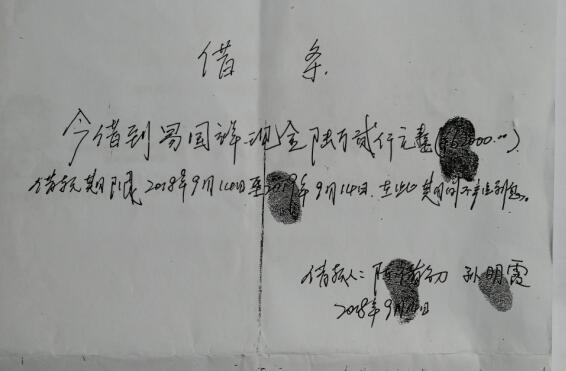 借条
今借到易国祥现金陆万贰仟元整(¥62000.00)
借款期限2018年9月14日至2019年9月14日.在此期间不产生利息。
借款人: 陈 孙明霞
2018年9月14日